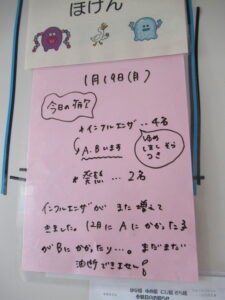 ほけん
1月19日(月)
今日の病欠
*インフルエンザ‥4名
A.Bいます
*発熱…2名
インフルエンザが また 増えて
きました。12月に Aに かかった子
が Bに かかったり…。まだまだ
油断できません!